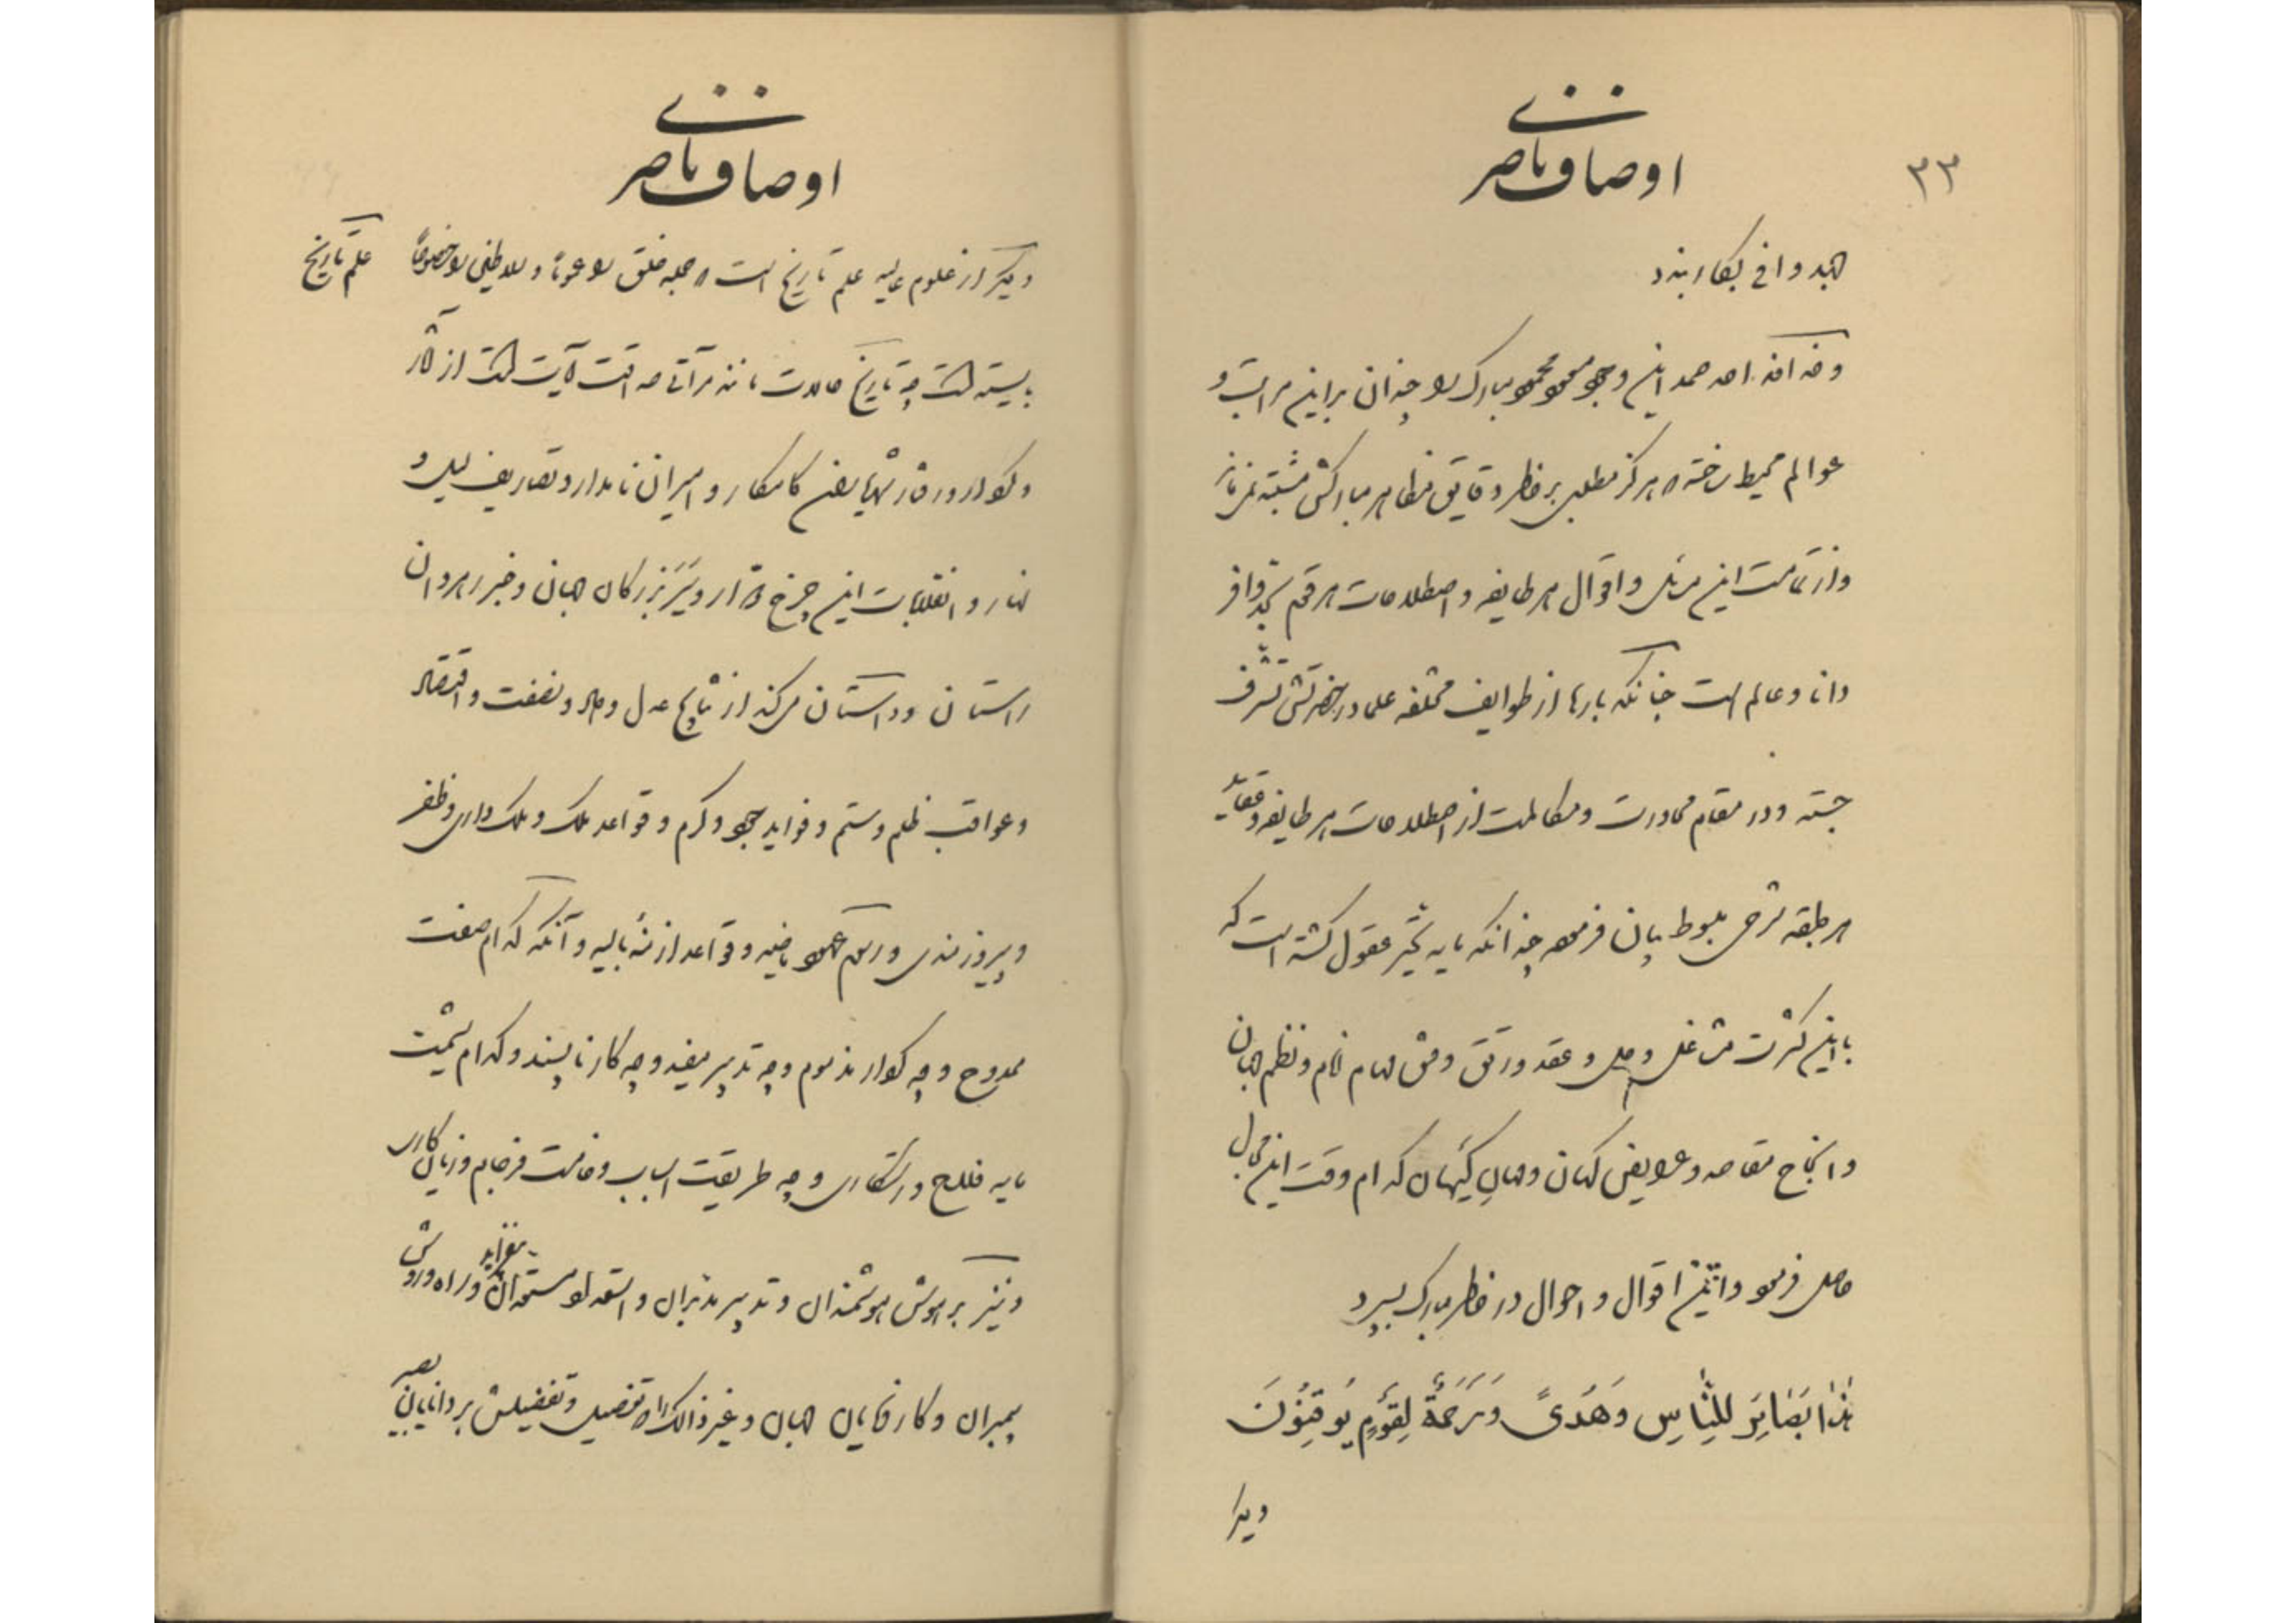 ۳۳
اوصاف ناصری
جهد وافی بکار برند
و خداوند احد صمد این وجود مسعود محمود مبارک را چندان براین مراتب و
عوالم محیط ساخته که هرگز مطلبی بر خاطر دقایق مظاهر مبارکش مشتبه نماند
و از تمامت این مسائل و اقوال هر طایفه و اصطلاحات هر قوم بحد وافر
دانا و عالم است چنانکه بارها از طوایف مختلفه علما در حضرتش تشرف
جسته و در مقام محاورت و مکالمت از اصطلاحات هر طایفه و عقاید
هر طبقه شرحی مبسوط بیان فرموده چندانکه مایه تحیر عقول گشته است که
با این کثرت مشاغل و حل و عقد و رتق و فتق مهام انام و نظم جهان
و انجاح مقاصد و عرایض کهان و مهان کیهان کدام وقت این مجال
حاصل فرمود و این اقوال و احوال در خاطر مبارک بسپرد
هٰذا بَصَائِرُ لِلنّاسِ وَهُدیً وَرَحمَةٌ لِقَومٍ یُوقِنُونَ
دیگر
اوصاف ناصری
علم تاریخ
دیگر از علوم عالیه علم تاریخ است که جمله خلق را عموما و سلاطین را خصوصاً
بایسته است چه تاریخ حالات مانند مرآتی صداقت آیت است از آثار
و کردار و رفتار شهریاران کامکار و امیران نامدار و تصاریف لیل و
نهار و انقلابات این چرخ دوار و سیر بزرگان جهان و خبر راهروان
راستان و داستان میکند از نتایج عدل و داد و نصفت و اقتصاد
و عواقب ظلم و ستم و فواید جود و کرم و قواعد ملک و ملک داری و ظفر
و پیروزمندی و رسوم عهود ماضیه و قواعد ازمنهٔ بالیه و آنکه کدام صفت
ممدوح و چه کردار مذموم و چه تدبیر مفید و چه کار ناپسند و کدام شیمت
مایه فلاح و رستگاری و چه طریقت اسباب وخامت فرجام و زیان کاری
و نیز بر هوش هوشمندان و تدبیر مدبران و استعداد مستعدان بیفزاید و راه و روش
پیمبران و کارفرمایان جهان و غیر ذالک را که تفصیل و تفضیلش بر دانایان بصیر